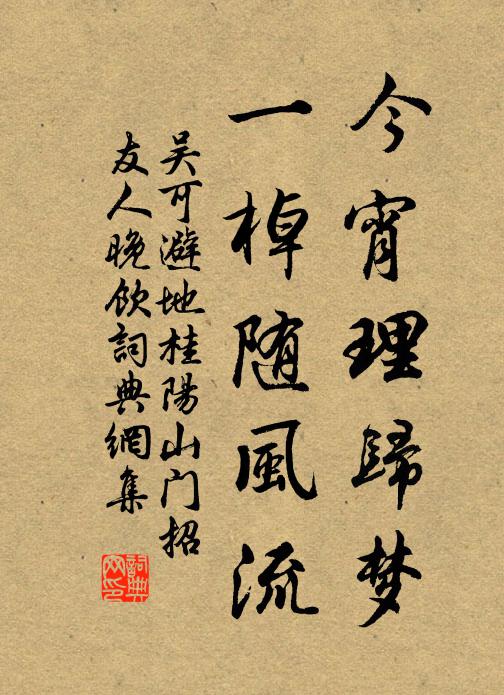 今宵理歸梦
一棹随風流
吴可避地桂陽山门招
友人晚飲詞典網集
詞典
网印